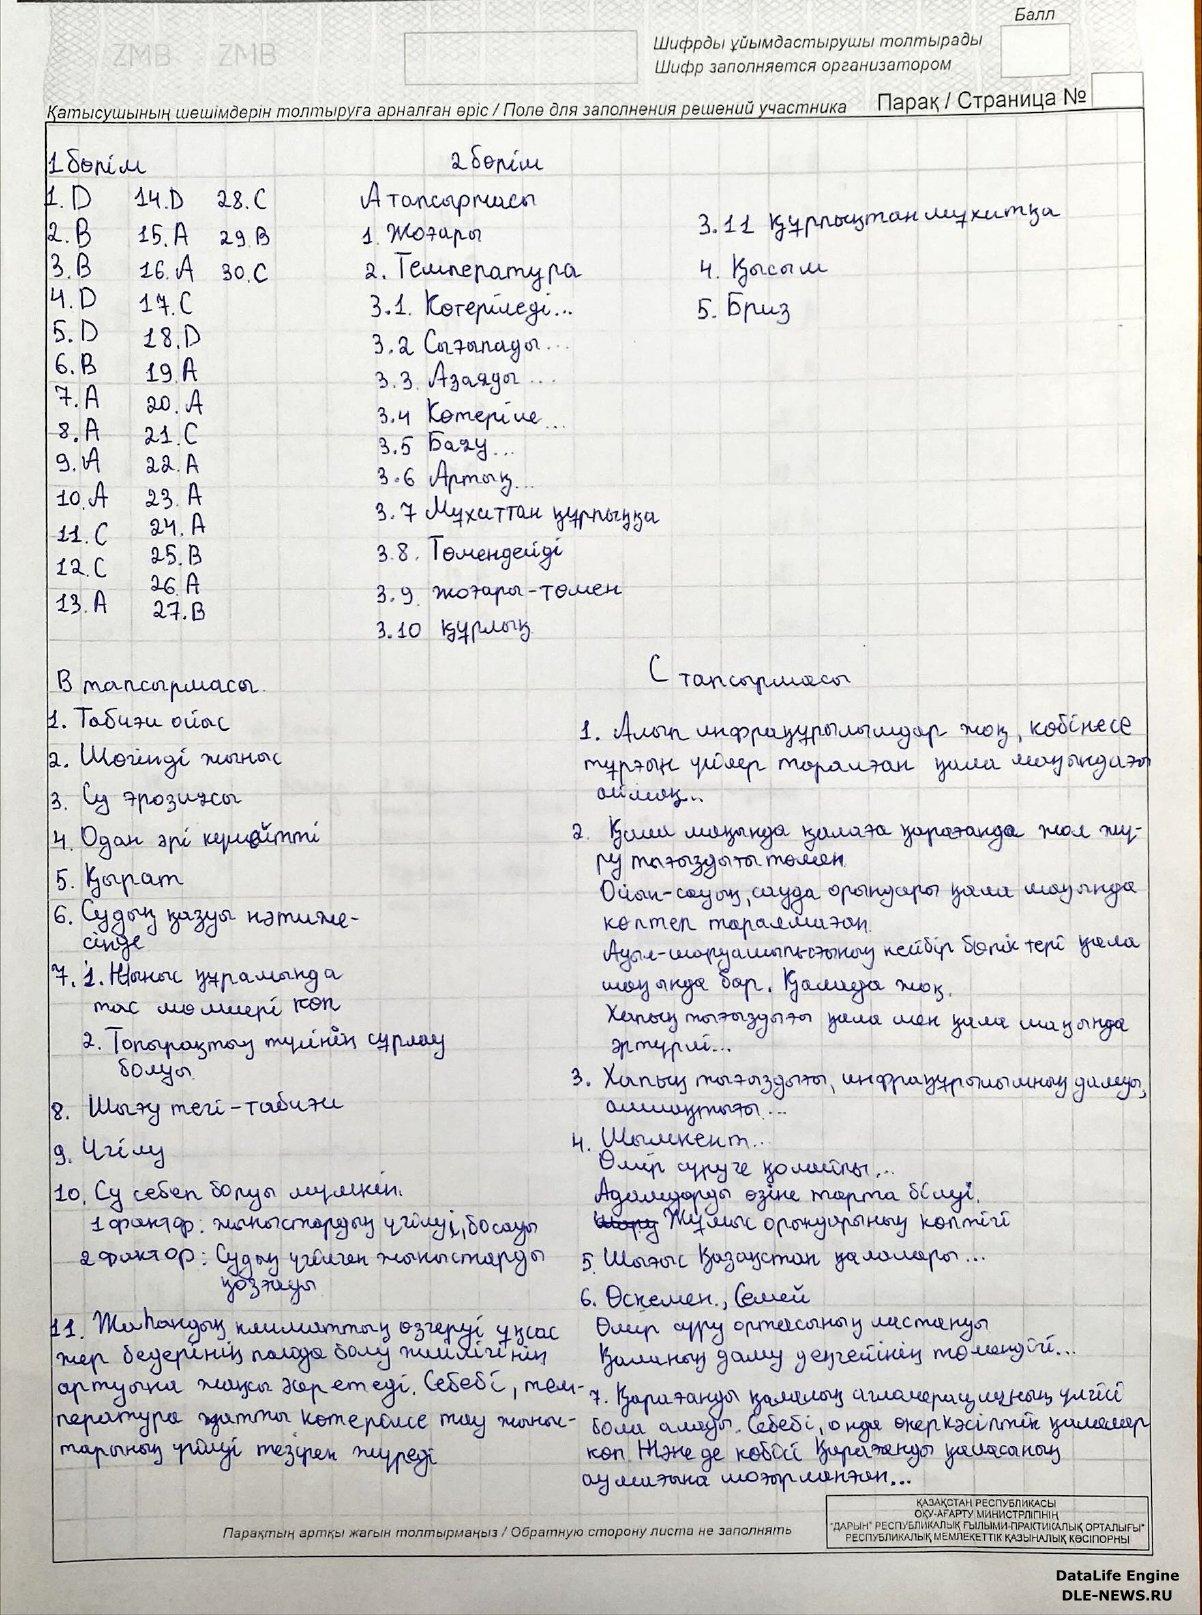 ZMB ZMB
Балл
Шифрды ұйымдастырушы толтырады
Шифр заполняется организатором
Қатысушының шешімдерін толтыруға арналған өріс / Поле для заполнения решений участника
Парақ / Страница №
1 бөлім
1. D
2. B
3. B
4. D
5. D
6. B
7. A
8. A
9. A
10. A
11. C
12. C
13. A
14. D
15. A
16. A
17. C
18. D
19. A
20. A
21. C
22. A
23. A
24. A
25. B
26. A
27. B
28. C
29. B
30. C
2 бөлім
А тапсырмасы
1. Жоғары
2. Температура
3.1. Көтеріледі...
3.2 Сығылады...
3.3. Азаяды...
3.4 Көтеріле...
3.5 Баяу...
3.6 Артық...
3.7 Мұхиттан құрлыққа
3.8. Төмендейді
3.9. жоғары-төмен
3.10 құрлық
3.11 Құрлықтан мұхитқа
4. Қысым
5. Бриз
В тапсырмасы.
1. Табиғи ойыс
2. Шөгінді жыныс
3. Су эрозиясы
4. Одан әрі күшейтті
5. Қырат
6. Судың қазуы нәтиже-
сінде
7. 1. Жыныс құрамында
тас мөлшері көп
2. Топырақтың түсінің сұрлау
болуы.
8. Шығу тегі - табиғи
9. Үгілу
10. Су себеп болуы мүмкін.
1 фактор: жыныстардың үгілуі, босауы
2 фактор: Судың үгілген жыныстарды
қозғауы
11. Жаһандық климаттың өзгеруі ұқсас
жер бедерінің пайда болу жиілігінің
артуына жақсы әсер етеді. Себебі, тем-
пература қатты көтерілсе тау жыныс-
тарының үгілуі тезірек жүреді
С тапсырмасы
1. Алып инфрақұрылымдар жоқ, көбінесе
тұрғын үйлер таралған қала маңындағы
аймақ...
2. Қала маңында қалаға қарағанда жол жү-
ру тығыздығы төмен.
Ойын-сауық, сауда орындары қала маңында
көптеп таралмаған.
Ауыл-шаруашылығының кейбір бөліктері қала
маңында бар. Қалада жоқ.
Халық тығыздығы қала мен қала маңында
әртүрлі...
3. Халық тығыздығы, инфрақұрылымның дамуы,
4. Шымкент...
Өмір сүруге қолайлы...
Адамдарды өзіне тарта білуі.
Жұмыс орындарының көптігі
5. Шығыс Қазақстан қалалары...
6. Өскемен., Семей
Өмір сүру ортасының ластануы
Қаланың даму деңгейінің төмендігі...
7. Қарағанды қалалық агломерацияның үлгісі
бола алады. Себебі, онда өнеркәсіптік қалалар
көп. Және де көбісі Қарағанды қаласының
аумағына шоғырланған...
Парақтың артқы жағын толтырмаңыз / Обратную сторону листа не заполнять
ҚАЗАҚСТАН РЕСПУБЛИКАСЫ
ОҚУ-АҒАРТУ МИНИСТРЛІГІНІҢ
"ДАРЫН" РЕСПУБЛИКАЛЫҚ ҒЫЛЫМИ-ПРАКТИКАЛЫҚ ОРТАЛЫҒЫ"
РЕСПУБЛИКАЛЫҚ МЕМЛЕКЕТТІК ҚАЗЫНАЛЫҚ КӘСІПОРНЫ
DataLife Engine
DLE-NEWS.RU